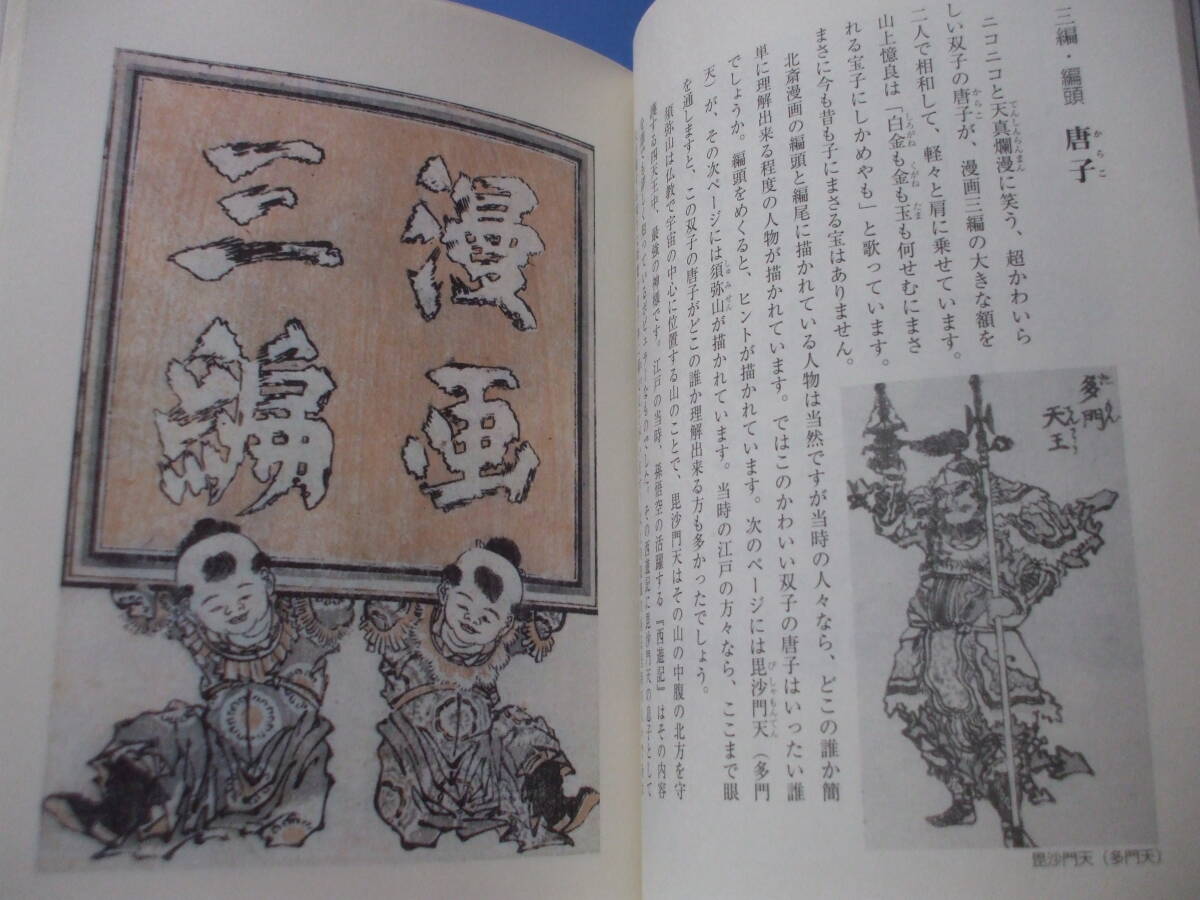 三編・編頭 唐子
ニコニコと天真爛漫に笑う、超かわいら
しい双子の唐子が、漫画三編の大きな額を
二人で相和して、軽々と肩に乗せています。
山上憶良は「白金も金も玉も何せむにまさ
れる宝子にしかめやも」と歌っています。
まさに今も昔も子にまさる宝はありません。
北斎漫画の編頭と編尾に描かれている人物は当然ですが当時の人々なら、どこの誰か簡
単に理解出来る程度の人物が描かれています。ではこのかわいい双子の唐子はいったい誰
でしょうか。編頭をめくると、ヒントが描かれています。次のページには毘沙門天（多門
天）が、その次ページには須弥山が描かれています。当時の江戸の方々なら、ここまで眼
を通しますと、この双子の唐子がどこの誰か理解出来る方も多かったでしょう。
須弥山は仏教で宇宙の中心に位置する山のことで、毘沙門天はその山の中腹の北方を守
護する四天王中、最強の神様です。江戸の当時、孫悟空の活躍する『西遊記』はその内容
その西遊記に毘沙門天の息子として
多門
天王
毘沙門天（多門天）
漫画
三編